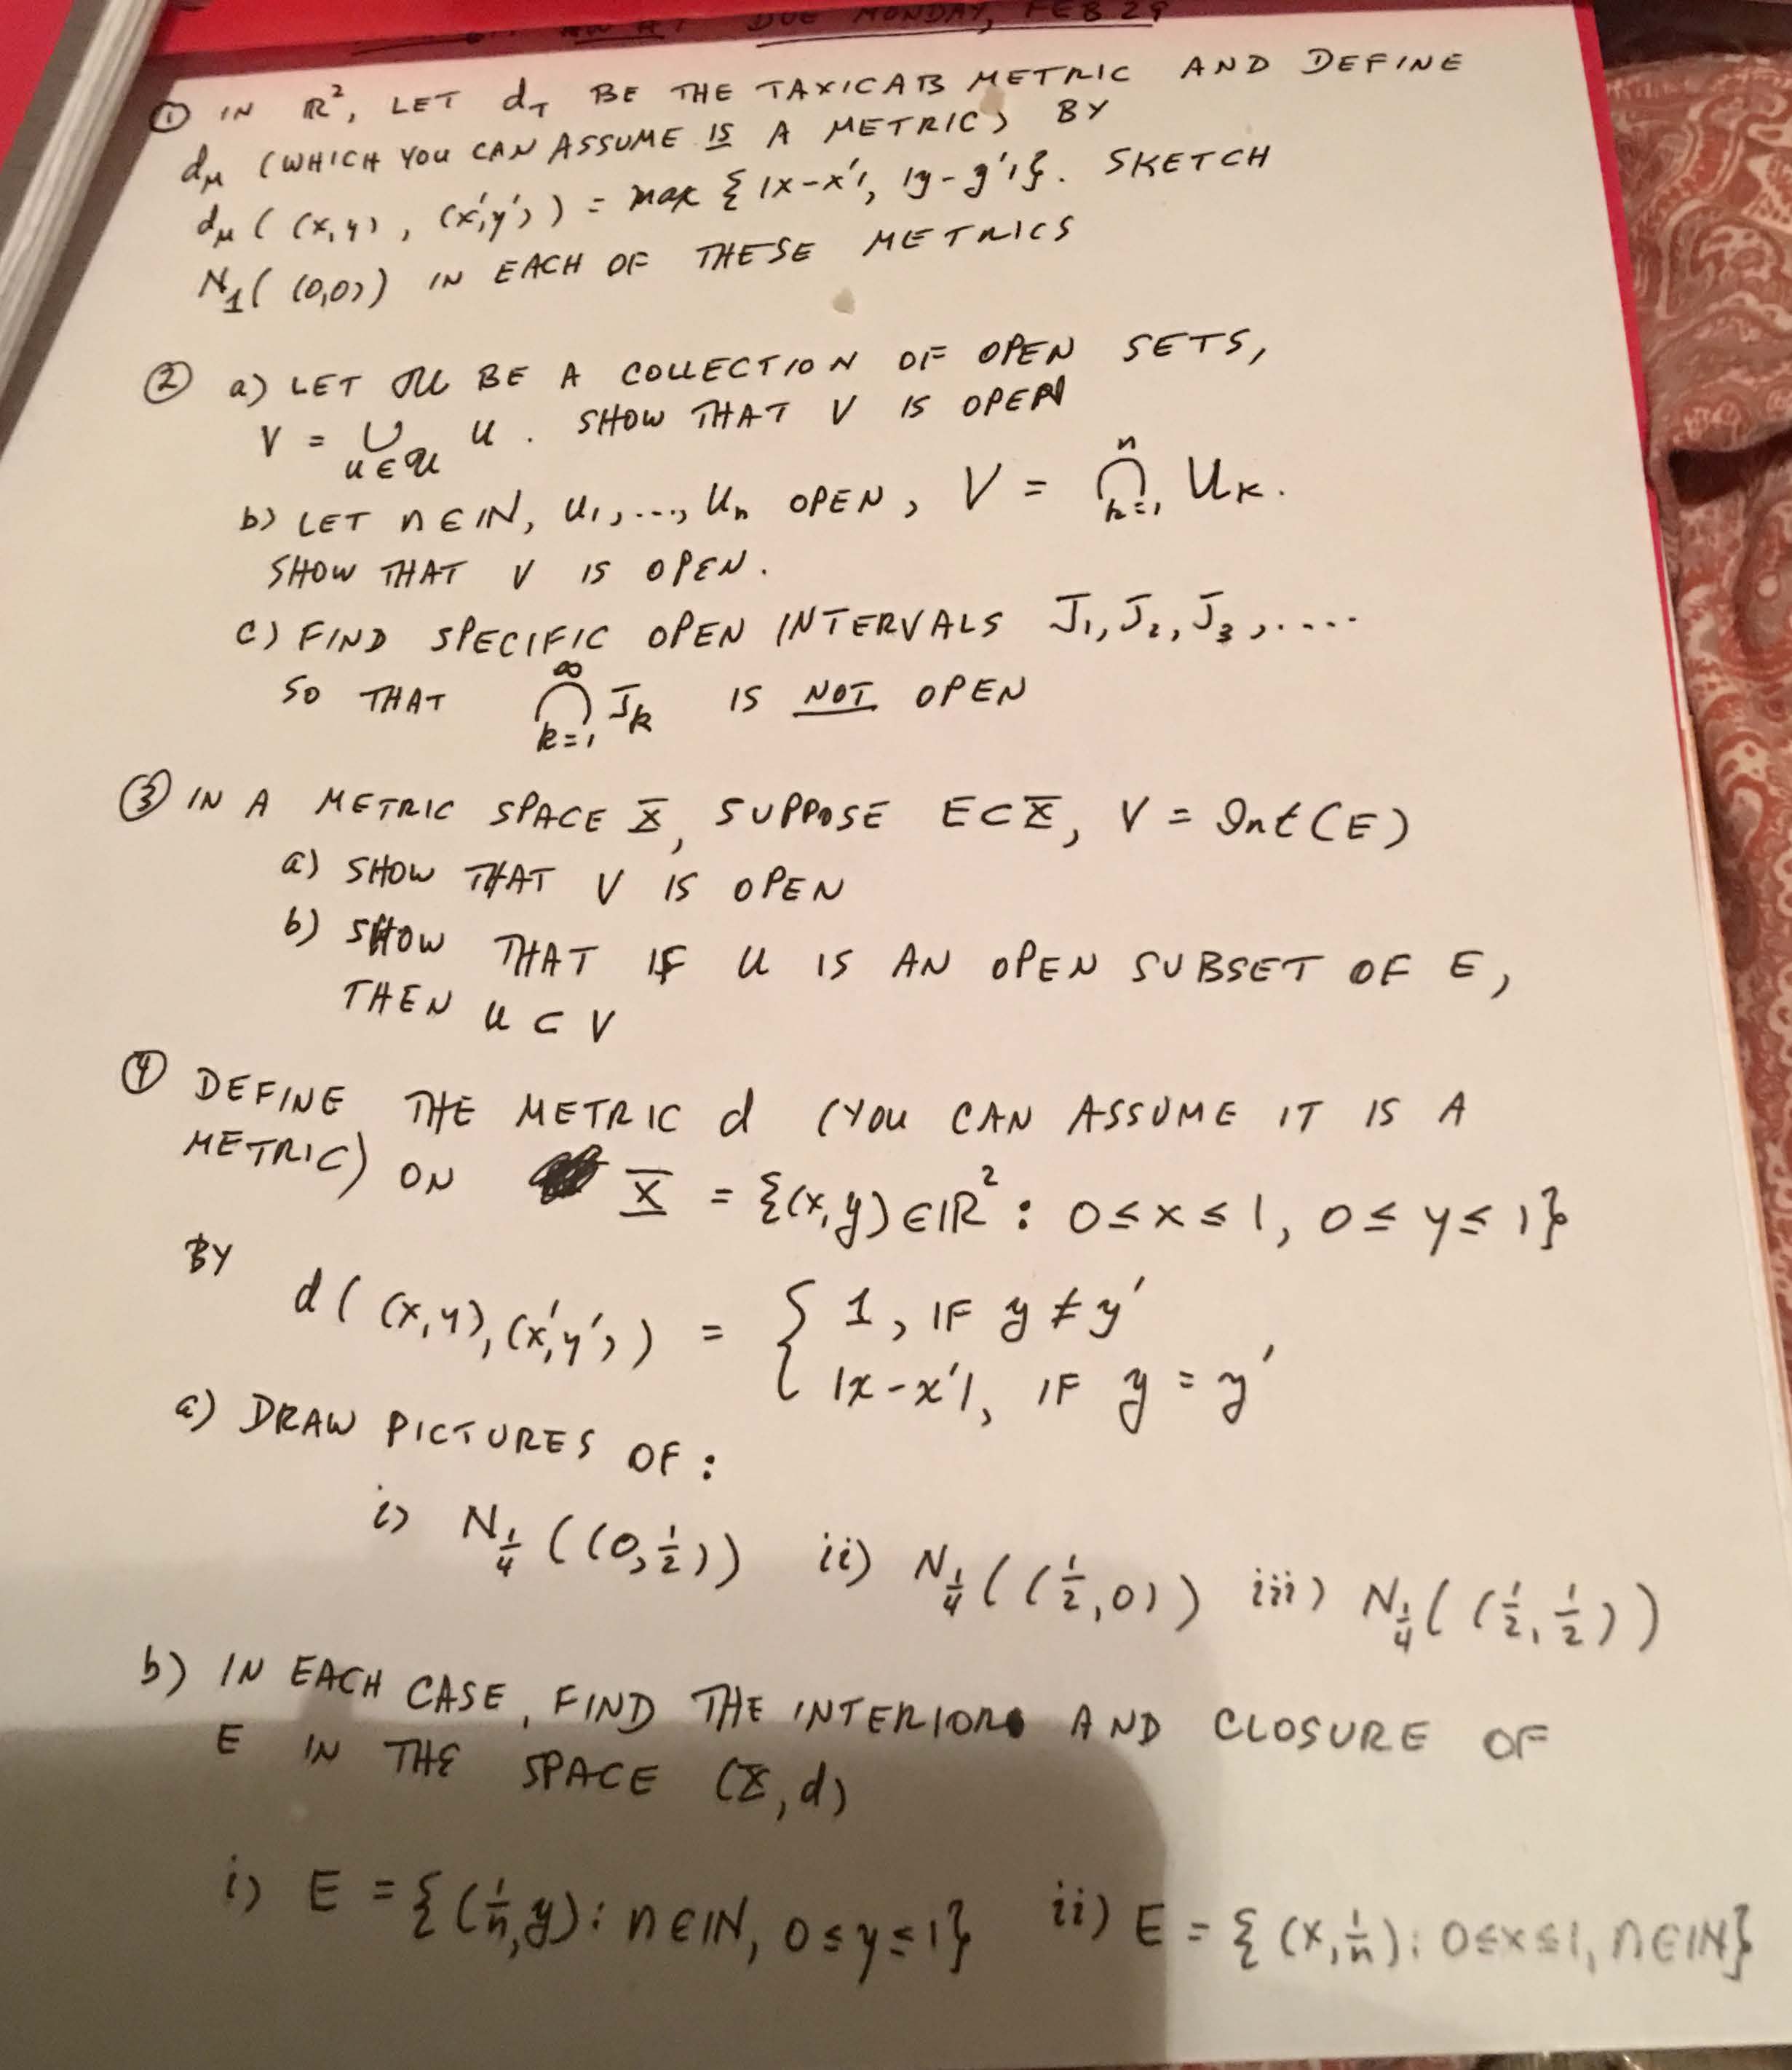 DUE MONDAY, FEB 29
① IN ℝ², LET d_T BE THE TAXICAB METRIC AND DEFINE
d_M (WHICH YOU CAN ASSUME IS A METRIC) BY
d_M ( (x,y), (x',y') ) = max { |x-x'|, |y-y'| }. SKETCH
N_1( (0,0) ) IN EACH OF THESE METRICS
② a) LET 𝒰 BE A COLLECTION OF OPEN SETS,
V = ∪_{U∈𝒰} U. SHOW THAT V IS OPEN
b) LET n ∈ ℕ, U_1, ..., U_n OPEN, V = ∩_{k=1}^{n} U_k.
SHOW THAT V IS OPEN.
c) FIND SPECIFIC OPEN INTERVALS J_1, J_2, J_3, ....
SO THAT ∩_{k=1}^{∞} J_k IS NOT OPEN
③ IN A METRIC SPACE X, SUPPOSE E ⊂ X, V = Int(E)
a) SHOW THAT V IS OPEN
b) SHOW THAT IF U IS AN OPEN SUBSET OF E,
THEN U ⊂ V
④ DEFINE THE METRIC d (YOU CAN ASSUME IT IS A
METRIC) ON X = {(x,y) ∈ ℝ² : 0 ≤ x ≤ 1, 0 ≤ y ≤ 1}
BY
d( (x,y), (x',y') ) = { 1, IF y ≠ y'
|x-x'|, IF y = y'
a) DRAW PICTURES OF:
i) N_{1/4} ((0,1/2)) ii) N_{1/4} ((1/2,0)) iii) N_{1/4} ((1/2,1/2))
b) IN EACH CASE, FIND THE INTERIOR AND CLOSURE OF
E IN THE SPACE (X,d)
i) E = {(1/n,y): n ∈ ℕ, 0 ≤ y ≤ 1} ii) E = {(x,1/n): 0 ≤ x ≤ 1, n ∈ ℕ}